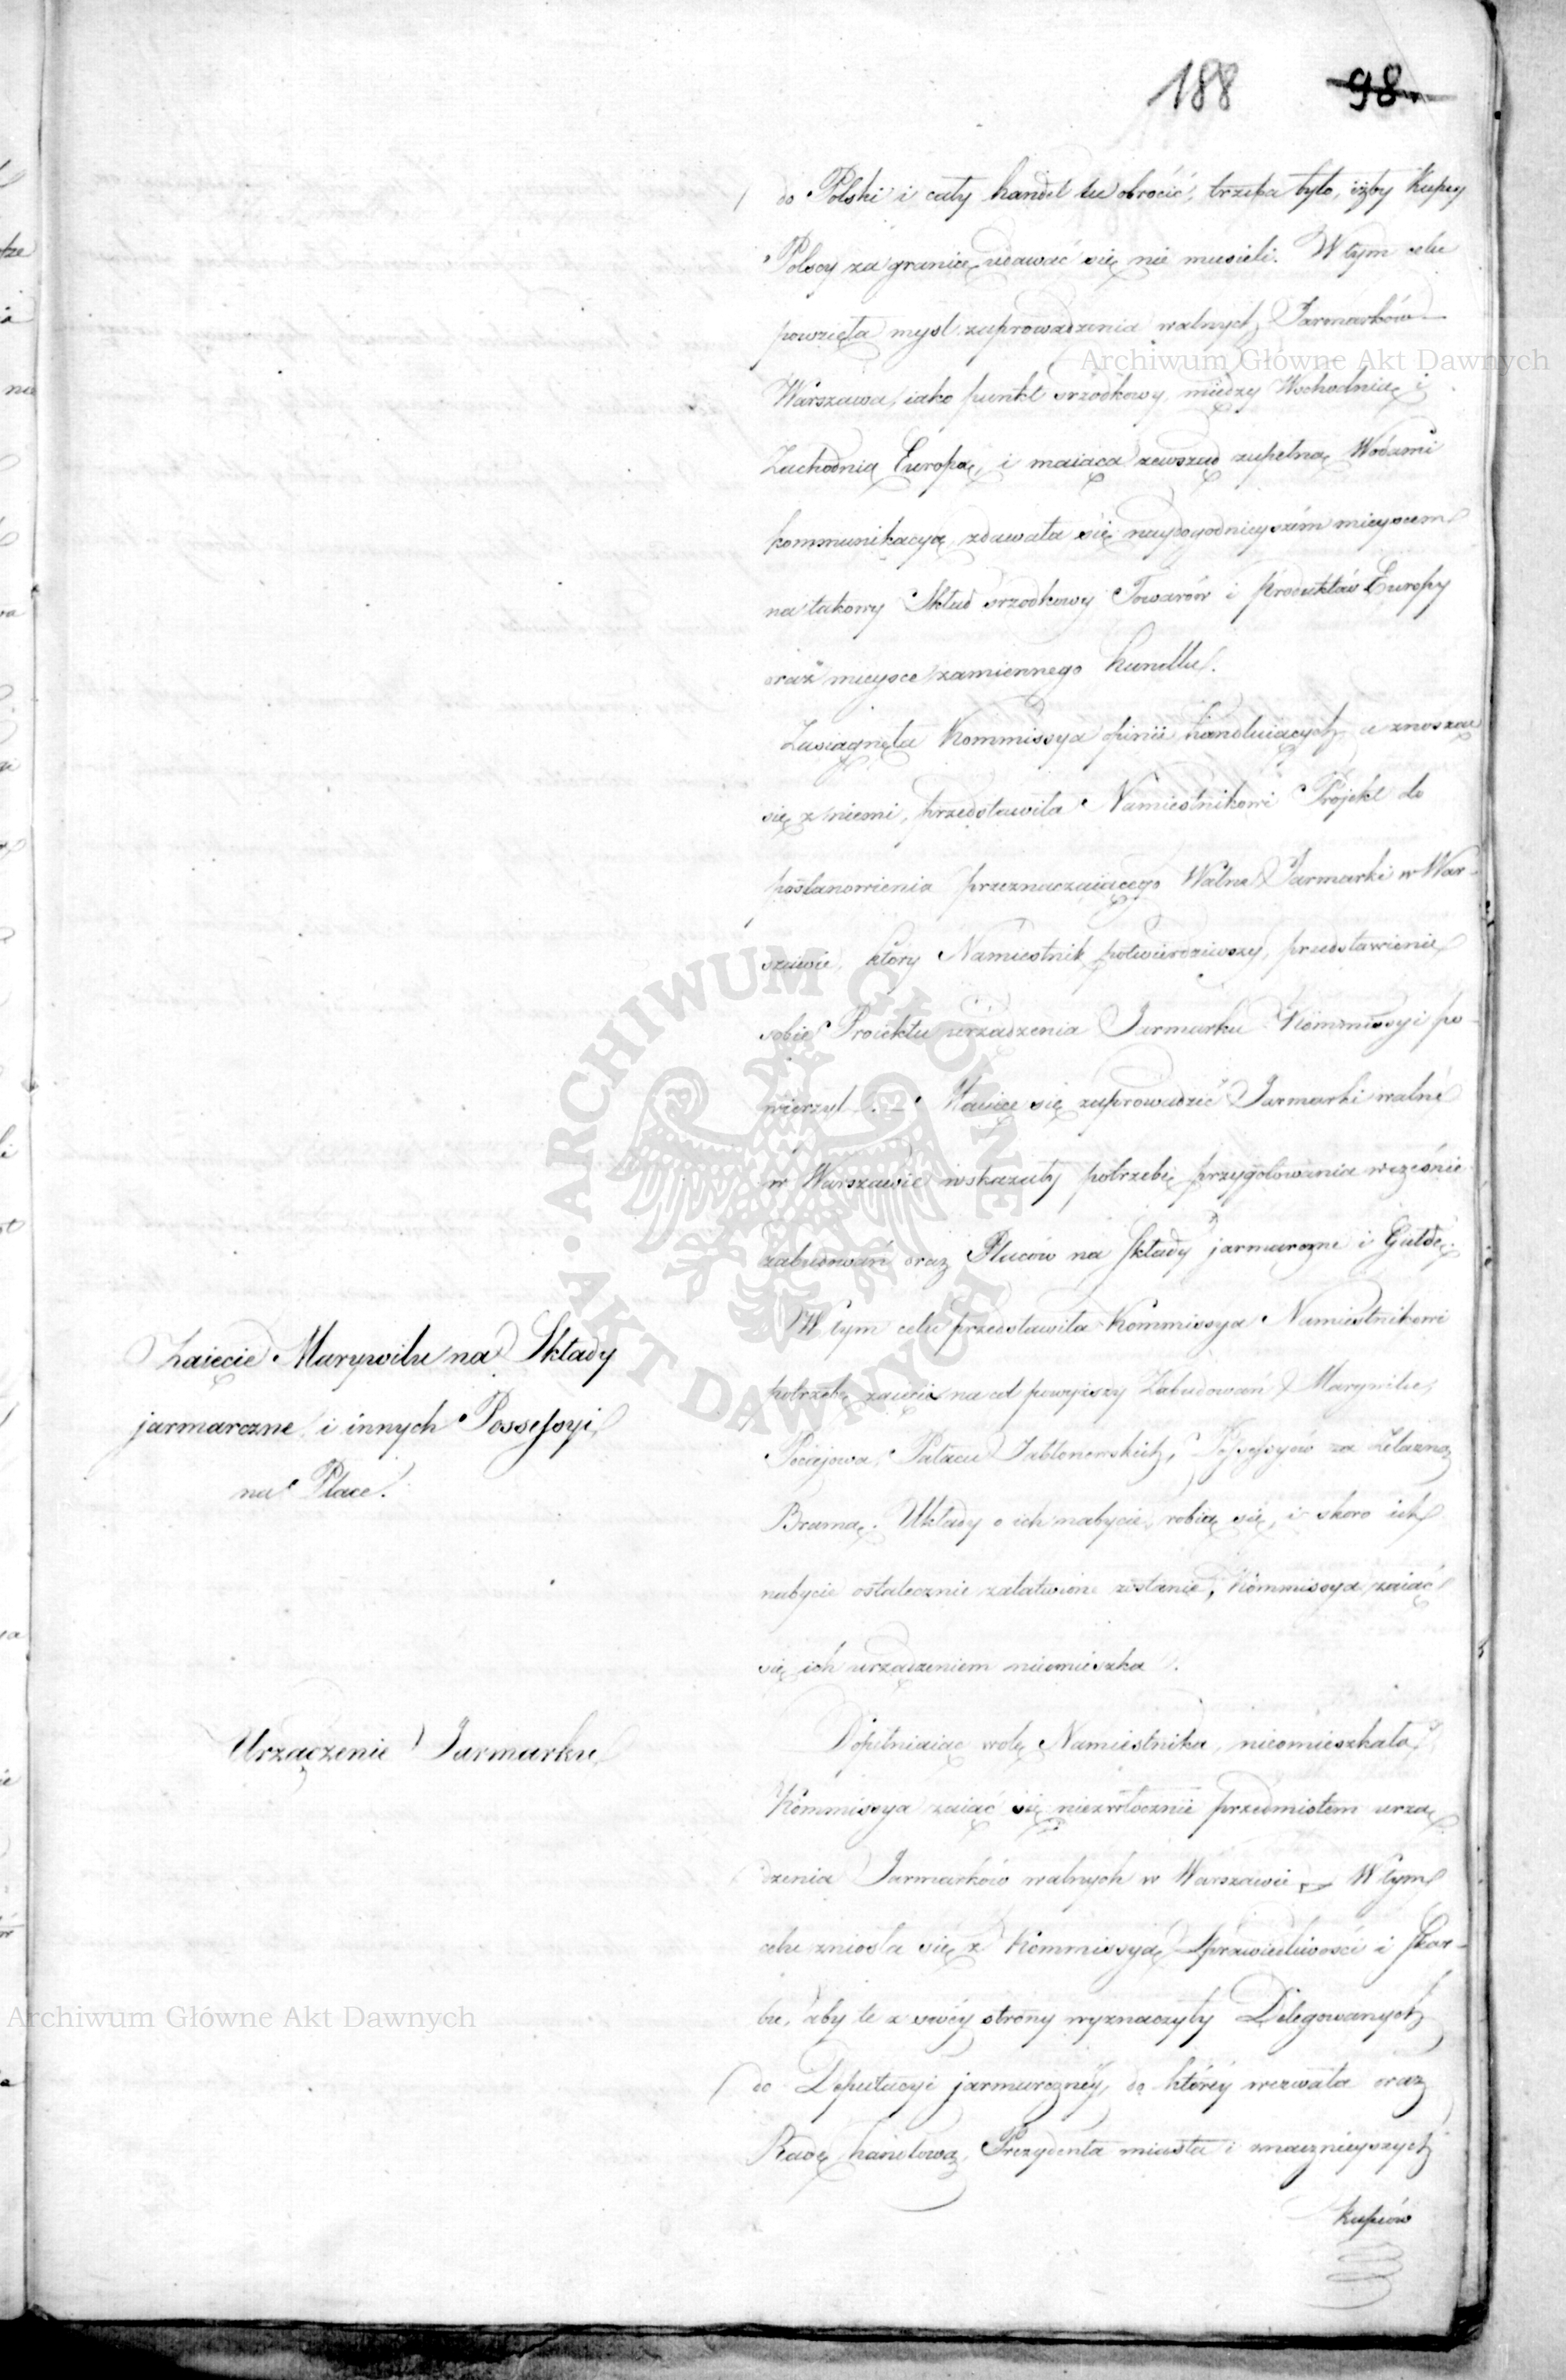 188 98.
do Polski i cały handel tu obrócić, trzeba było, iżby Kupcy
Polscy za granicę udawać się nie musieli. W tym celu
powzięta myśl zaprowadzenia walnych Jarmarków
Warszawa, iako punkt srzodkowy, między Wschodnią i
Zachodnią Europą, i maiąca zewsząd zupełną Wodami
kommunikacyą, zdawała się naydogodnieyszém mieyscem
na takowy Skład srzodkowy Towarów i Produktów Europy
oraz mieysce zamiennego handlu.
Zasiągnęła Kommissya opinii handluiących, a znosząc
się z niemi, przedstawiła Namiestnikowi Projekt do
postanowienia przeznaczaiącego Walne Jarmarki w War-
szawie, który Namiestnik potwierdziwszy, przedstawienie
sobie Proiektu urządzenia Jarmarku Kommissyi po-
wierzył. — Maiące się zaprowadzić Jarmarki walne
w Warszawie wskazały potrzebę przygotowania wcześnie
zabudowań oraz Placów na składy jarmarczne i Giełdę.
Zaięcie Marywilu na Składy
jarmarczne i innych Possessyi
na Place.
W tym celu przedstawiła Kommissya Namiestnikowi
potrzebę zaięcia na cel powyższy Zabudowań Marywilu,
Pociejowa, Pałacu Jabłonowskich, Possessyów za Żelazną
Bramą. Układy o ich nabycie robią się, i skoro ich
nabycie ostatecznie załatwione zostanie, Kommissya zaiąć
się ich urządzeniem nieomieszka.
Urządzenie Jarmarku
Dopełniaiąc wolę Namiestnika, nieomieszkała
Kommissya zaiąć się niezwłocznie przedmiotem urzą
dzenia Jarmarków walnych w Warszawie — W tym
celu zniosła się z Kommissyą Sprawiedliwości i Skar-
bu, aby te z swéy strony wyznaczyły Delegowanych
do Deputacyi jarmarcznéy, do któréy wezwała oraz
Radę handlową, Prezydenta miasta i znacznieyszych
kupców
Archiwum Główne Akt Dawnych
Archiwum Główne Akt Dawnych
ARCHIWUM GŁÓWNE AKT DAWNYCH